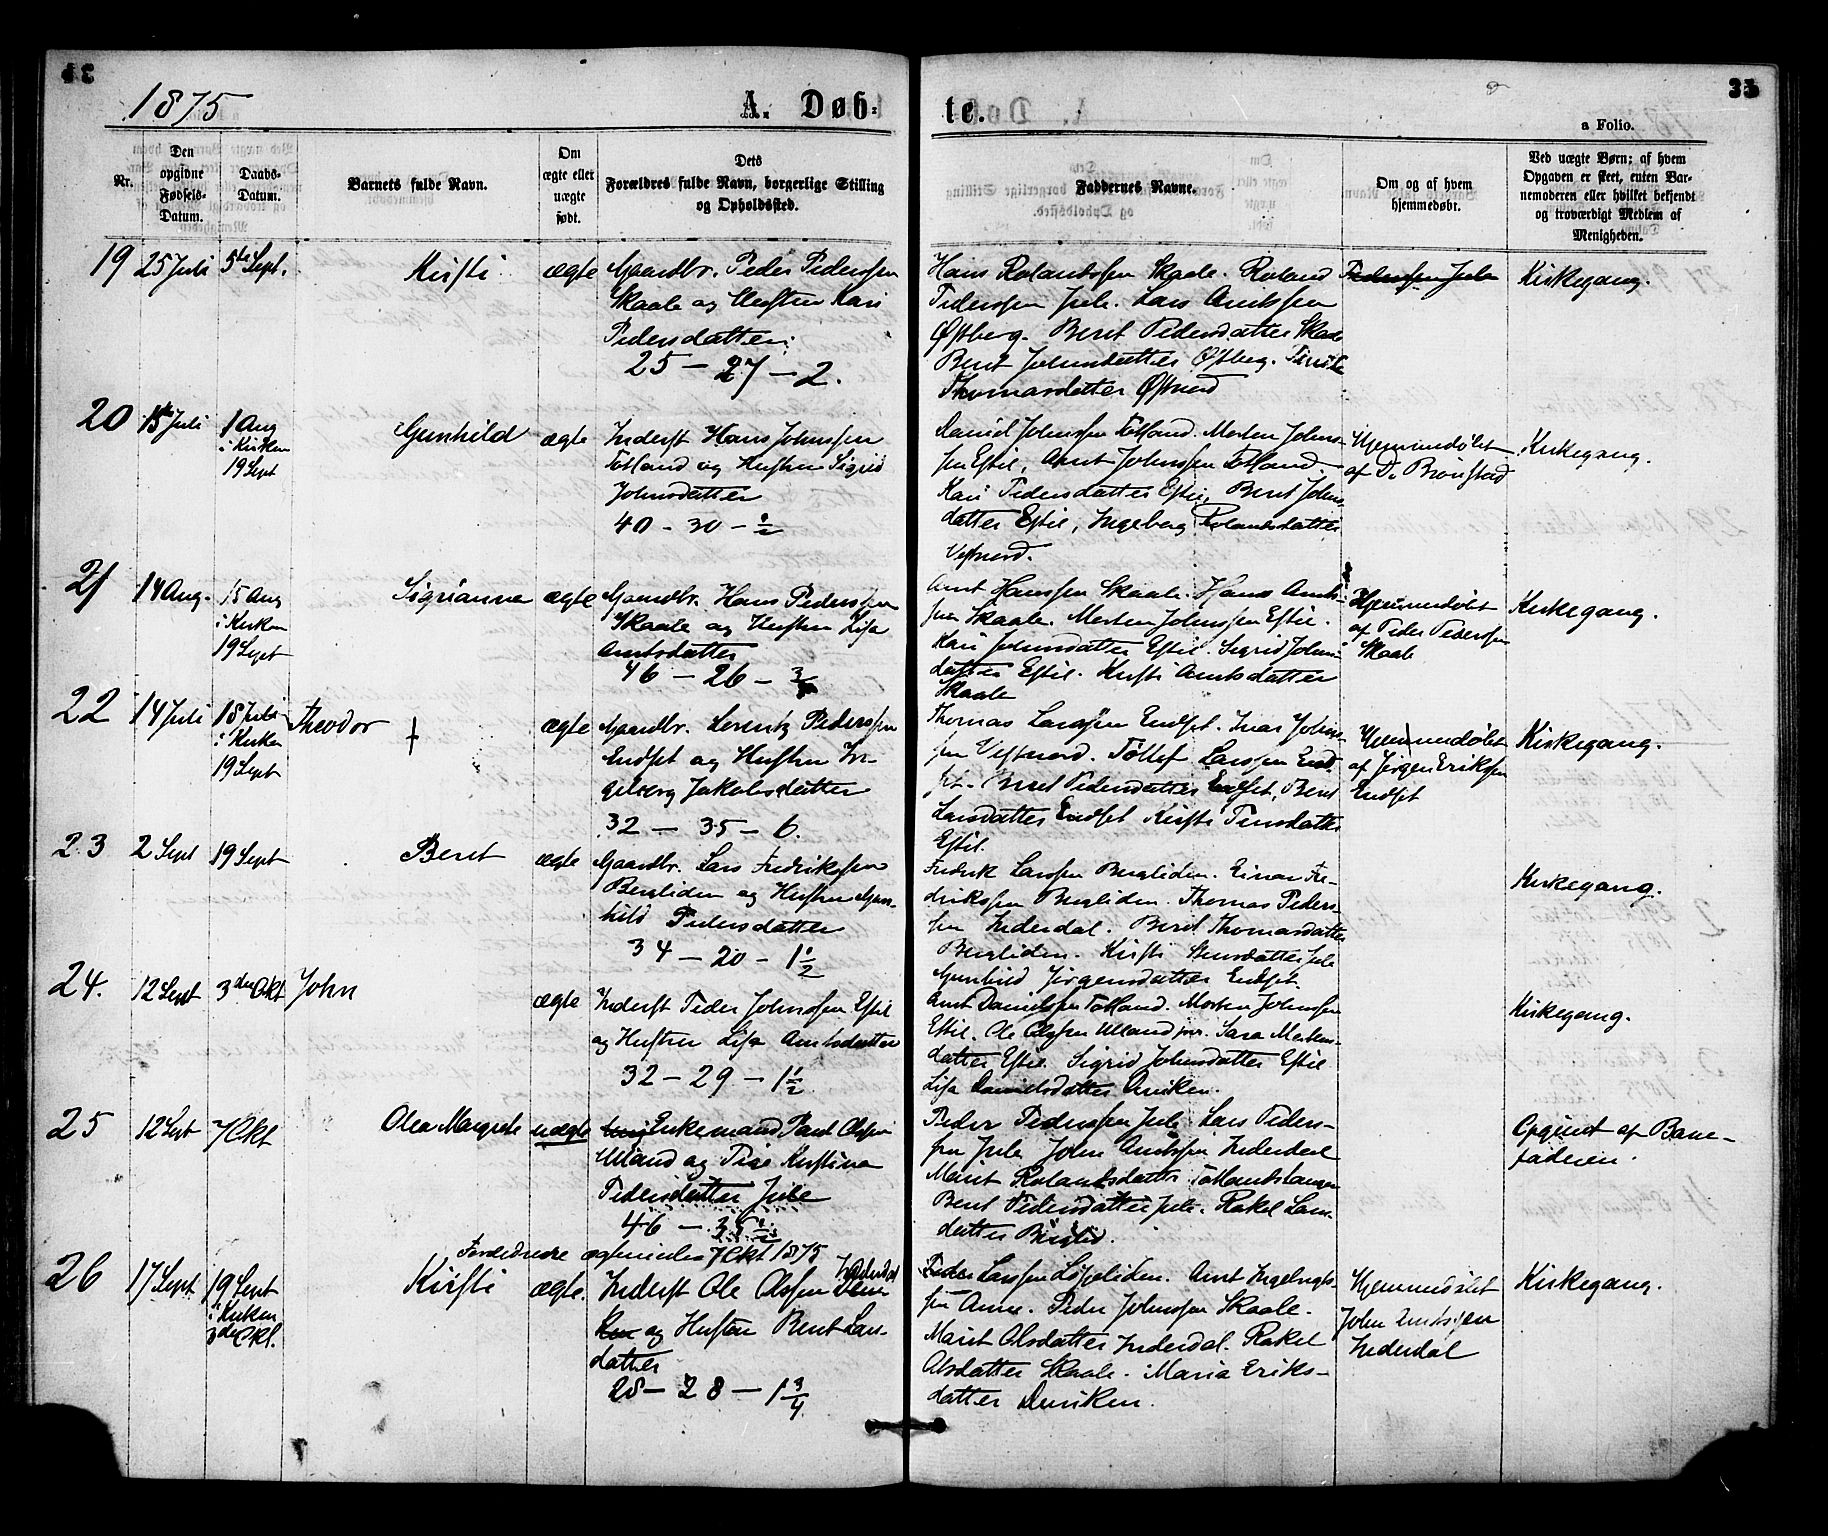 1875
A. Døb-
te.
33
a Folio.
Nr.
Den opgivne Fødsels-Datum.
Daabs-Datum.
Barnets fulde Navn.
Om ægte eller uægte født.
Dets Forældres fulde Navn, borgerlige Stilling og Opholdssted.
Faddernes Navne.
Om og af hvem hjemmedøbt.
Ved uægte Børn; af hvem Opgaven er skeet, enten Barnemoderen eller hvilket bekjendt og troværdigt Medlem af Menigheden.
19 25 Juli 5te Sept. Kirsti ægte Gaardbr. Peder Pederssen
Skaale og Hustru Kari
Pedersdatter.
25 — 27 — 2.
Hans Rolandssen Skaale. Roland
Pederssen Jule. Lars Arntssen
Østberg. Beret Pedersdatter Skaale
Beret Johnsdatter Østberg.
Thomasdatter
Kirkegang.
20 15 Juli 1 Aug i Kirken 19 Sept Gunhild ægte Inderst Hans Johnssen
Totland og Hustru Sigrid
Johnsdatter
40 - 30 - ½
Daniel Johnssen Totland. Morten Johns-
sen Estil, Arnt Johnssen Totland
Kari Pedersdatter Estil, Beret Johns-
datter Estil, Ingeborg Rolandsdatter
Vestnerd.
Hjemmedøbt
af D. Brønstad
Kirkegang.
21 14 Aug. 15 Aug i Kirken 19 Sept Sigrianna ægte Gaardbr. Hans Pederssen
Skaale og Hustru Lisa
Arntsdatter
46 — 26 —
Arnt Hanssen Skaale. Hans Arnts-
sen Skaale. Morten Johnssen Estil.
Kari Johnsdatter Estil. Sigrid Johns-
datter Estil. Kirsti Arntsdatter
Skaale
Hjemmedøbt
af Peder Pederssen
Skaale
Kirkegang.
22 14 Juli 18 Juli i Kirken 19 Sept Theodor † ægte Gaardbr. Lorentz Pederssen
Endset og Hustru In-
geborg Jakobsdatter
32 — 35 — 6.
Thomas Larssen Endset. Ivar Johns-
sen Vestnerd. Tollef Larssen End-
set. Beret Pedersdatter Endset, Beret
Larsdatter Endset Kirsti
Estil.
Hjemmedøbt
af Jørgen Erikssen
Endset
Kirkegang.
23 2 Sept 19 Sept Beret ægte Gaardbr. Lars Fredrikssen
Bergliden og Hustru Gun-
hild Pedersdatter
34 — 20 — 1½
Fredrik Larssen Bergliden. Einar Fre-
drikssen Bergliden. Thomas Peders-
sen Inderdal. Beret Thomasdatter
Bergliden. Kirsti Stensdatter Jule
Gunhild Jørgensdatter Endset.
Kirkegang.
24. 12 Sept 3die Okt John ægte Inderst Peder Johnssen Estil
og Hustru Lisa Arntsdatter
32 — 29 — 1½
Arnt Danielssen Totland. Morten Johnssen
Estil. Ole Olssen Ulland jnr. Sara Mortens-
datter Estil. Sigrid Johnsdatter Estil
Lisa Danielsdatter
Kirkegang.
25 12 Sept 7 Okt Olea Margrete uægte Enkemand Paul Olssen
Ulland og Kirstina
Pedersdatter Jule
46 — 35½
Forældrene ægteviedes 7 Okt 1875
Peder Pederssen Jule Lars Peders-
sen Jule John Arntssen Inderdal
Marit Rolandsdatter
Beret Pedersdatter Jule. Rakel Lars-
datter
Opgivet af Barne-
faderen.
26 17 Sept 19 Sept i Kirken 3die Okt. Kirsti ægte. Inderst Ole Olssen Inderdal
og Hustru Beret Lars-
datter
28 — 28 — 1¾
Peder Larssen Løseliden. Arnt Ingebrigts-
sen Aune. Peder Johnssen Skaale.
Marit Olsdatter Inderdal. Rakel
Olsdatter Skaale. Maria Eriks-
datter Duriken.
Hjemmedøbt
John Arntssen
Inderdal
Kirkegang.